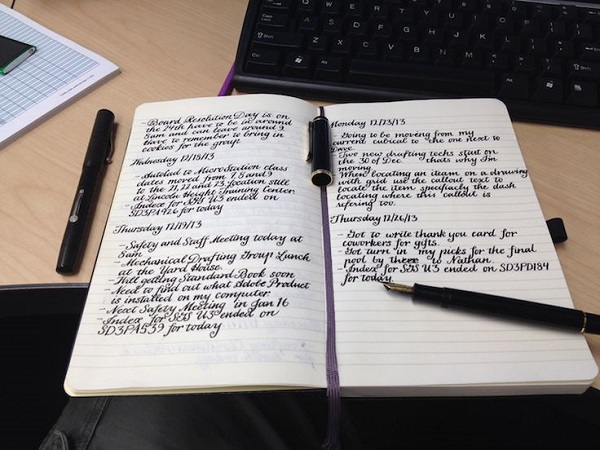 -Board Resolution Day is on
the 24th have to be at around
8am and can leave around 2
have to remember to bring in
cookies for the group
Wednesday 12/18/13
-Autoled to MicroStation class
dates moved from 7, 8 and 9
to the 21, 22 and 23 location still
at Lincoln Height Training Center
-Index for SGS U3 ended on
SD3PA926 for today
Thursday 12/19/13
-Safety and Staff Meeting today at
8am
-Mechanical Drafting Group Lunch
at the Yard House
-Will getting Standard Book soon
-Need to find out what Adobe Product
is installed on my computer
-Next Safety Meeting in Jan 16
-Index for SGS U3 ended on
SD3PA539 for today
Monday 12/23/13
-Going to be moving from my
current cubical to the one next to
Dave
-Two new drafting techs start on
the 30 of Dec thats why I'm
moving
-When locating an iteam on a drawing
with grid use the callout text to
locate the item specifacly the dash
locating where this callout is
refering too.
Thursday 12/26/13
-Got to write thank you card for
coworkers for gifts.
-Got turn in my picks for the final
pool by there to Nathan
-Index for SGS U3 ended on SD3PD184
for today
QWERTYUIOP
ASDFGHJKL
ZXCVBNM
Ctrl
Alt